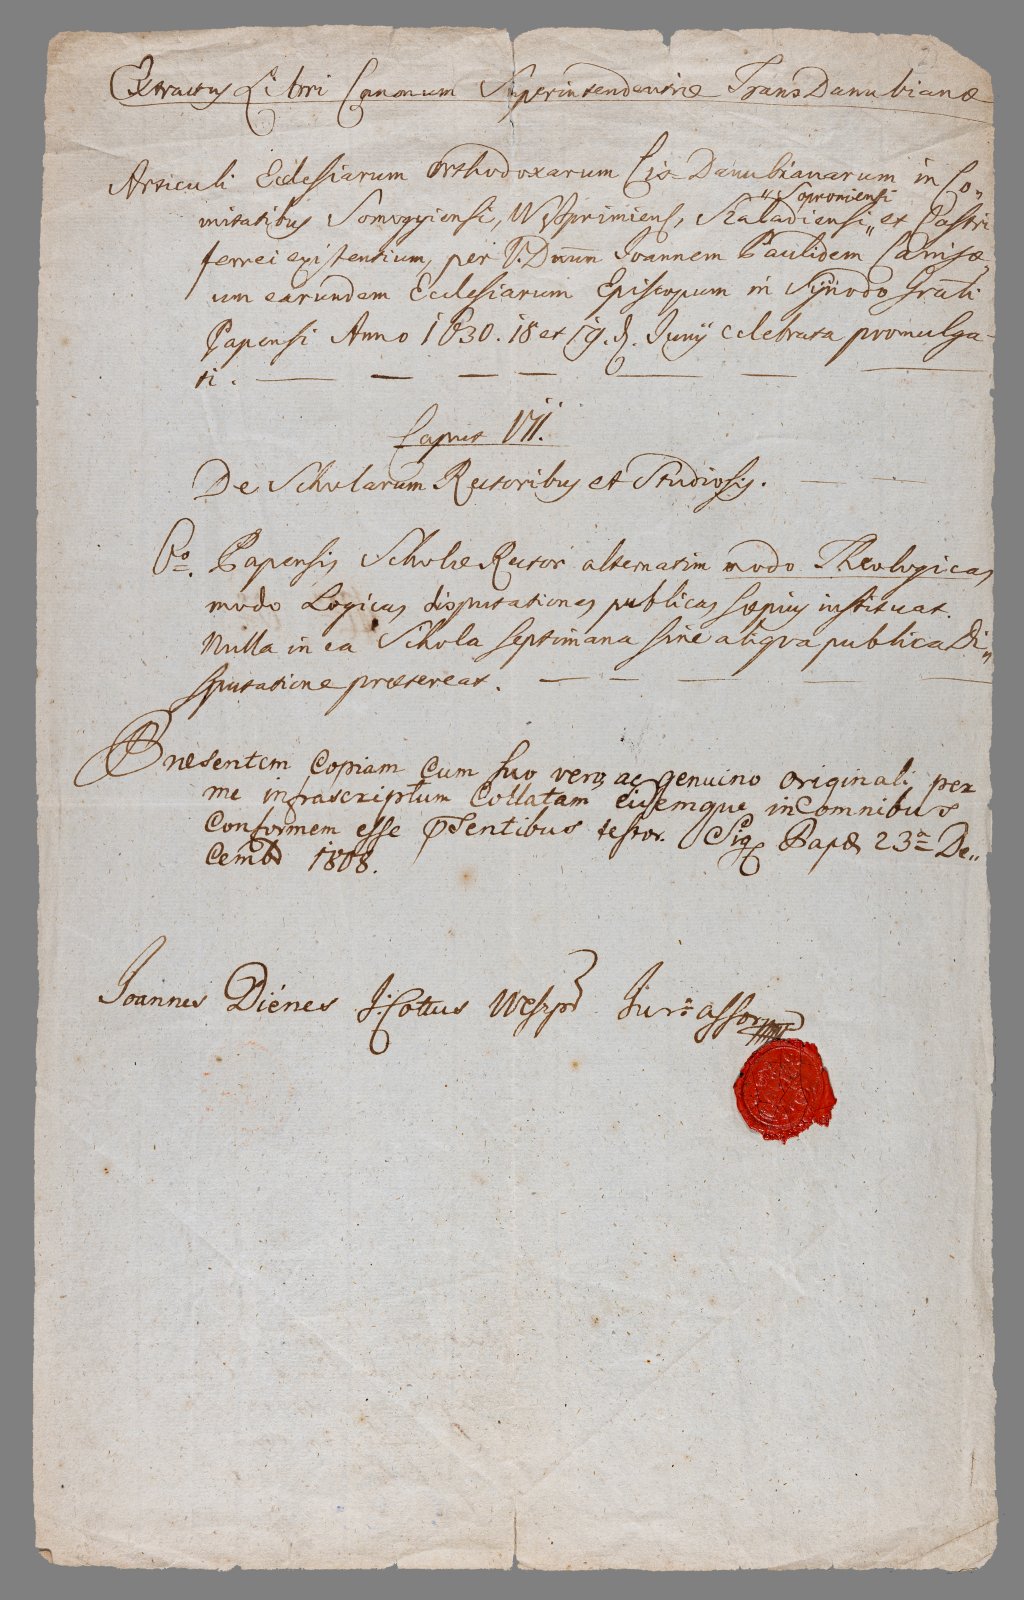 Extractus Libri Canonum Superintendentiæ TransDanubianæ
Articuli Ecclesiarum Orthodoxarum Cis-Danubianarum in Co„
„Soproniensi
mitatibus Somogyiensi, Weszprimiens, Szaladiensi „ et Castri
ferrei existentium, per P. Dnum Joannem Paulidem Canisæ
um earundem Ecclesiarum Episcopum in Synodo Grāli
Papensi Anno 1630. 18 et 19. d. Junij celebrata promulga-
ti.
Caput VII.
De Scholarum Rectoribus et Studiosis.
Papensis Scholæ Rector alternatim modo Theologicas
modo Logicas disputationes publicas sæpius instituat.
Nulla in ea Schola septimana sine aliqva publica Di„
sputatione prætereat.
Præsentem Copiam Cum suo vero ac genuino originali per
me infrascriptum Collatam eidemque in omnibus
Conformem esse pnsentibus testor. Sig Papæ 23a De„
cemb 1808.
Joannes Diénes I. Cottus Weszp Jur assor